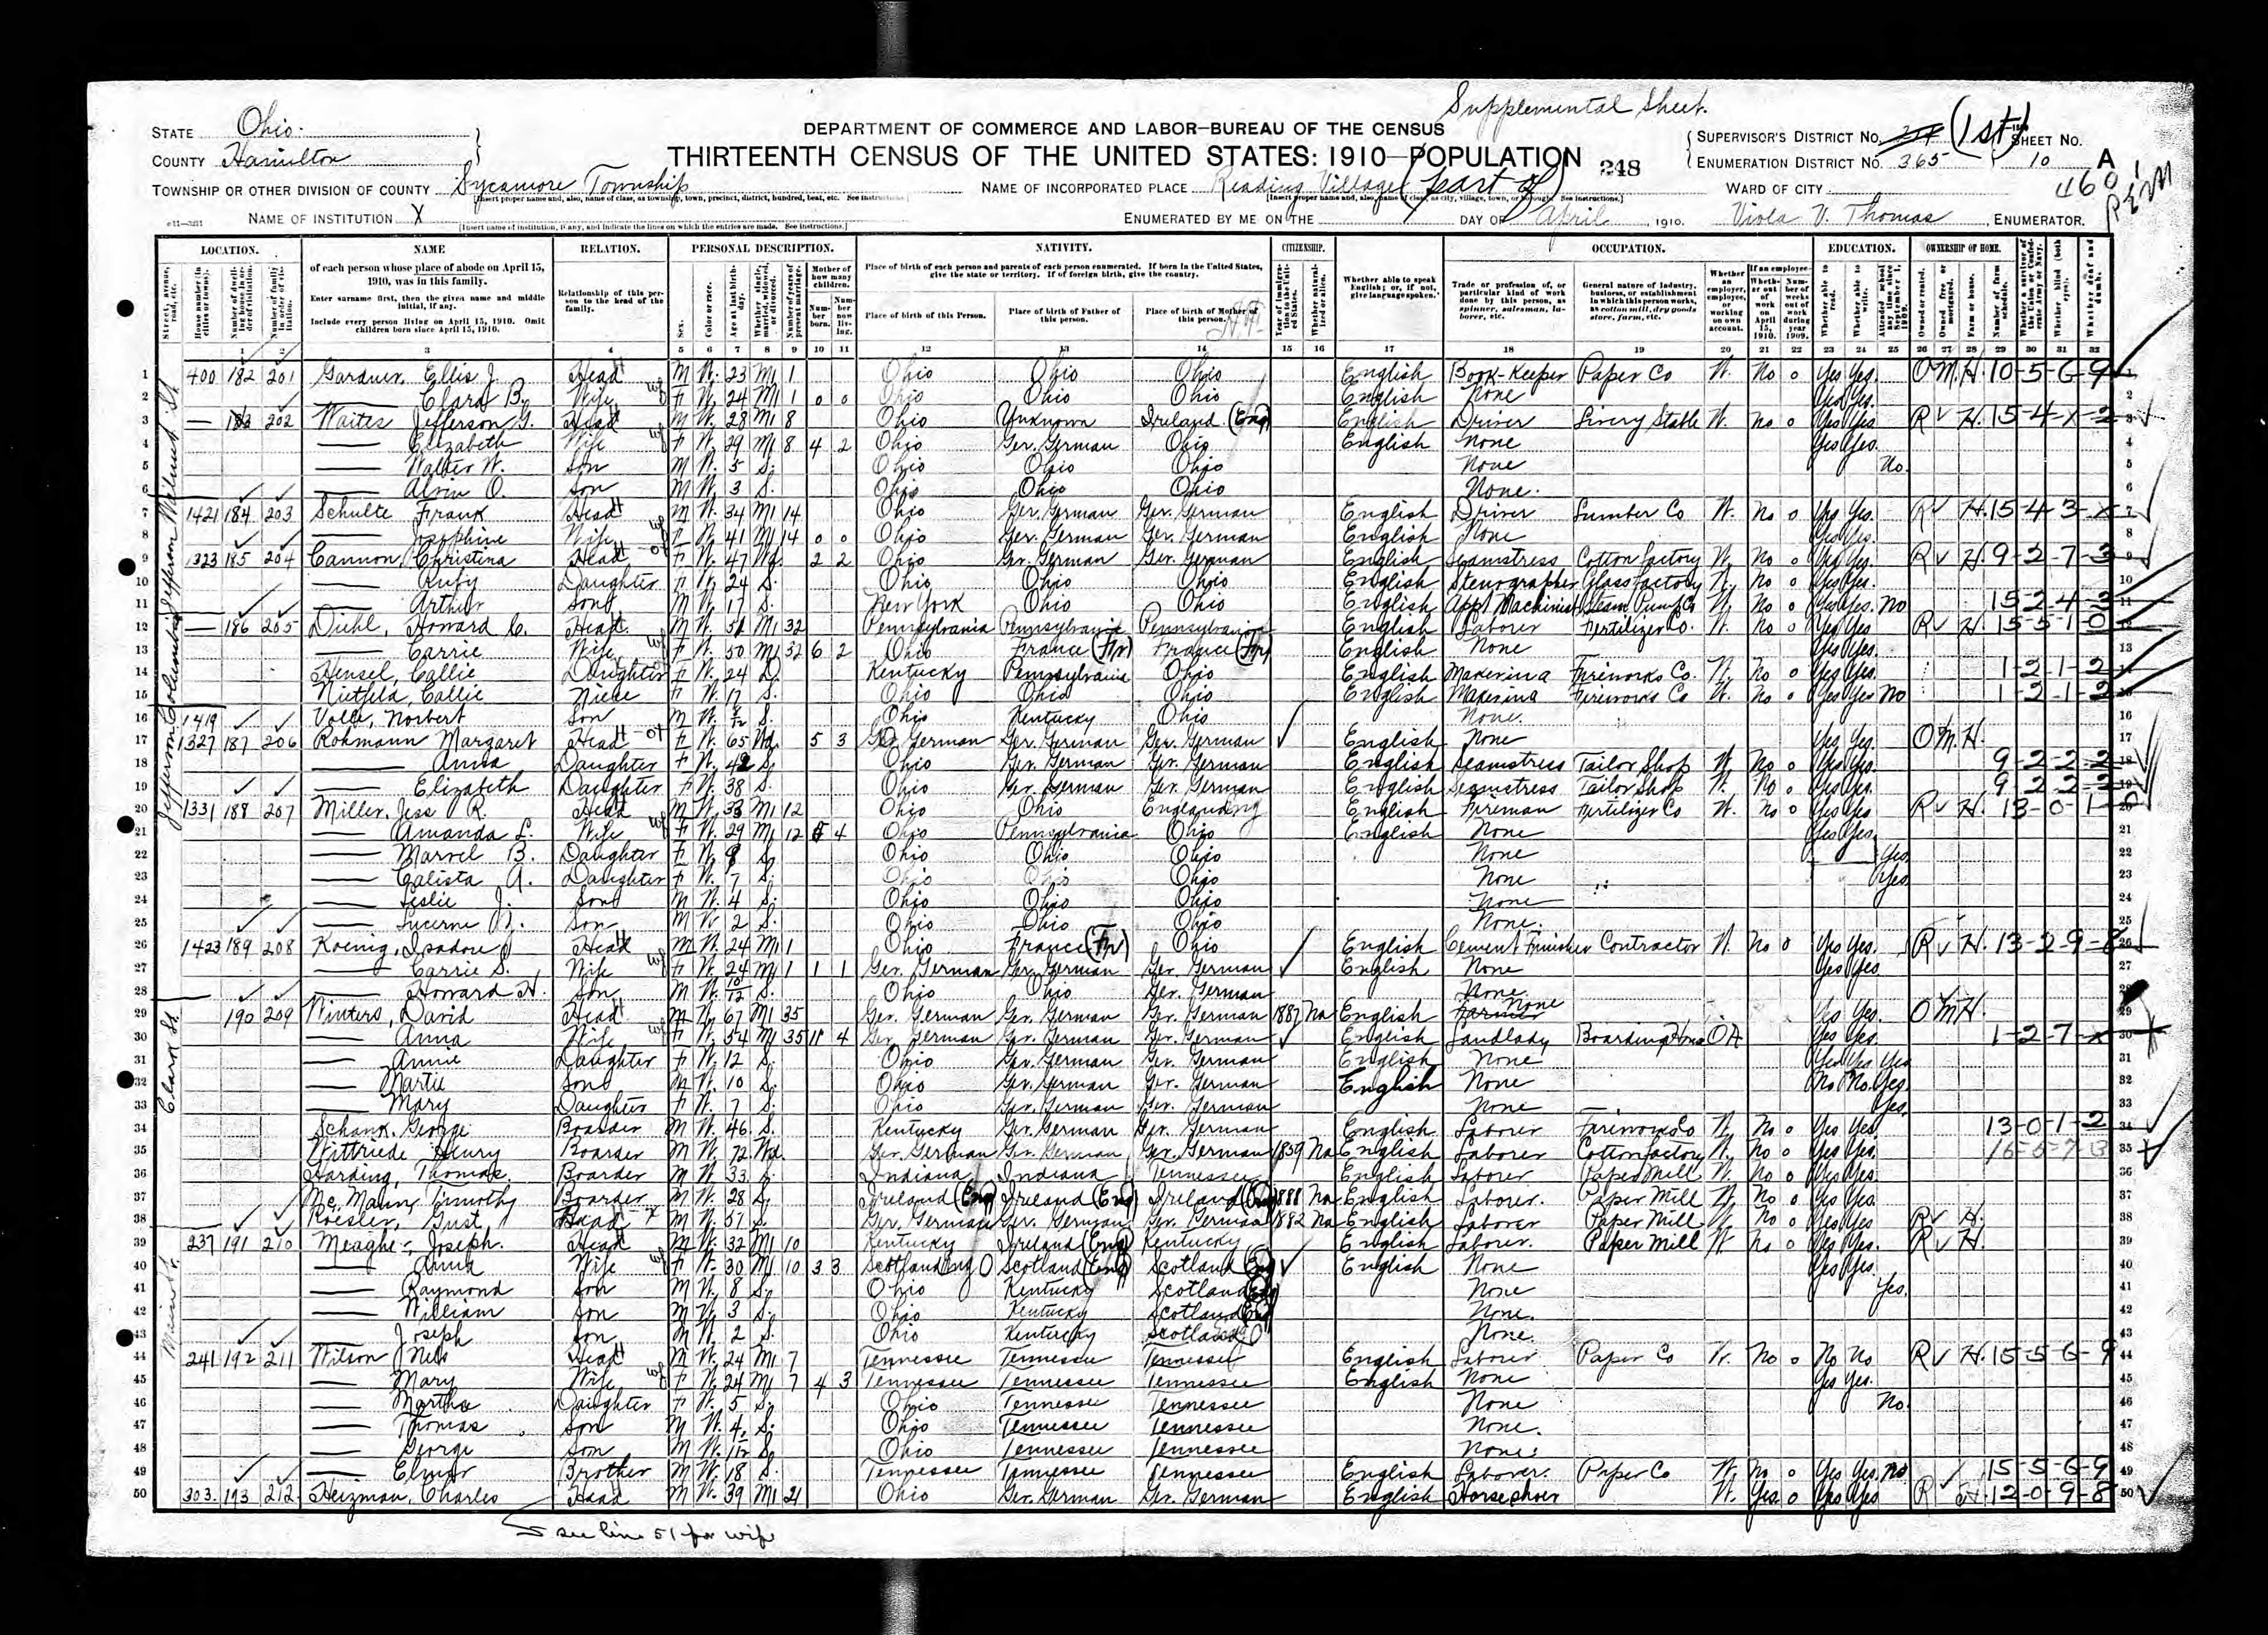 Supplemental Sheet.
STATE Ohio.
COUNTY Hamilton
TOWNSHIP OR OTHER DIVISION OF COUNTY Sycamore Township
NAME OF INSTITUTION X
DEPARTMENT OF COMMERCE AND LABOR—BUREAU OF THE CENSUS
THIRTEENTH CENSUS OF THE UNITED STATES: 1910—POPULATION 248
NAME OF INCORPORATED PLACE Reading Village (part of)
ENUMERATED BY ME ON THE DAY OF April, 1910. Viola V. Thomas, ENUMERATOR.
SUPERVISOR'S DISTRICT NO. (1st) SHEET NO.
ENUMERATION DISTRICT NO. 365 10 A
WARD OF CITY
LOCATION. NAME RELATION. PERSONAL DESCRIPTION. NATIVITY. CITIZENSHIP. OCCUPATION. EDUCATION. OWNERSHIP OF HOME.
of each person whose place of abode on April 15, 1910, was in this family.
Enter surname first, then the given name and middle initial, if any.
Include every person living on April 15, 1910. Omit children born since April 15, 1910.
Relationship of this person to the head of the family.
Place of birth of each person and parents of each person enumerated. If born in the United States, give the state or territory. If of foreign birth, give the country.
Place of birth of this Person. Place of birth of Father of this person. Place of birth of Mother of this person.
Whether able to speak English; or, if not, give language spoken.
1 400 182 201 Gardner, Ellis J. Head M W. 23 M1 1 Ohio Ohio Ohio English Book-Keeper Paper Co W. No 0 Yes Yes. O M. H. 10-5-6-9
2 Clara B. Wife F W. 24 M1 1 0 0 Ohio Ohio Ohio English None Yes Yes.
3 183 202 Waites Jefferson G. Head M W. 28 M1 8 Ohio Unknown Ireland (Eng) English Driver Livery Stable W. No 0 Yes Yes R H. 15-4-X-2
4 Elizabeth Wife F W. 29 M1 8 4 2 Ohio Ger. German Ohio English None Yes Yes.
5 Walter W. Son M W. 5 S. Ohio Ohio Ohio None No.
6 Alvin O. Son M W. 3 S. Ohio Ohio Ohio None.
7 1421 184 203 Schulte Frank Head M W. 34 M1 14 Ohio Ger. German Ger. German English Driver Lumber Co W. No 0 Yes Yes. R H. 15-4-3-X
8 Josephine Wife F W. 41 M1 14 0 0 Ohio Ger. German Ger. German English None Yes Yes.
9 1323 185 204 Cannon, Christina Head F W. 47 Wd. 2 2 Ohio Ger. German Ger. German English Seamstress Cotton factory W. No 0 Yes Yes. R H. 9-2-7-3
10 Ruby Daughter F W. 24 S. Ohio Ohio Ohio English Stenographer Glass factory W. No 0 Yes Yes.
11 Arthur Son M W. 17 S. New York Ohio Ohio English App. Machinist Steam Pump Co W. No 0 Yes Yes. No 15-2-4-3
12 186 205 Diehl, Howard C. Head M W. 51 M1 32 Pennsylvania Pennsylvania Pennsylvania English Laborer Fertilizer Co. W. No 0 Yes Yes. R H. 15-5-1-0
13 Carrie Wife F W. 50 M1 32 6 2 Ohio France (Fr) France (Fr) English None Yes Yes.
14 Hensel, Callie Daughter F W. 24 D. Kentucky Pennsylvania Ohio English Fireworks Co. W. No 0 Yes Yes. 1-2-1-2
15 Nietfeld, Callie Niece F W. 17 S. Ohio Ohio Ohio English Fireworks Co W. No 0 Yes Yes No 1-2-1-2
16 1419 Volle, Norbert Son M W. S. Ohio Kentucky Ohio None.
17 1327 187 206 Rohmann Margaret Head F W. 65 Wd. 5 3 Ger German Ger. German Ger. German English None Yes Yes. O M. H.
18 Anna Daughter F W. 42 S. Ohio Ger. German Ger. German English Seamstress Tailor Shop W. No 0 Yes Yes. 9-2-2-2
19 Elizabeth Daughter F W. 38 S. Ohio Ger. German Ger. German English Seamstress Tailor Shop W. No 0 Yes Yes. 9-2-2-2
20 1331 188 207 Miller, Jess R. Head M W. 33 M1 12 Ohio Ohio England English Fireman Fertilizer Co W. No 0 Yes Yes R H. 13-0-1-0
21 Amanda L. Wife F W. 29 M1 12 4 Ohio Pennsylvania Ohio English None Yes Yes.
22 Marvel B. Daughter F W. 9 S. Ohio Ohio Ohio None Yes
23 Calista A. Daughter F W. 7 S. Ohio Ohio Ohio None Yes
24 Leslie J. Son M W. 4 S. Ohio Ohio Ohio None
25 Lucerne Son M W. 2 S. Ohio Ohio Ohio None.
26 1423 189 208 Koenig, Isadore J Head M W. 24 M1 1 Ohio France (Fr) Ohio English Cement Finisher Contractor W. No 0 Yes Yes. R H. 13-2-9-8
27 Carrie S. Wife F W. 24 M1 1 1 1 Ger. German Ger. German Ger. German English None Yes Yes
28 Howard H. Son M W. 10/12 S. Ohio Ohio Ger. German None.
29 190 209 Winters, David Head M W. 67 M1 35 Ger. German Ger. German Ger. German 1887 Na English None Yes Yes. O M H.
30 Anna Wife F W. 54 M1 35 11 4 Ger German Ger. German Ger. German English Landlady Boarding House OA Yes Yes. 1-2-7-X
31 Annie Daughter F W. 12 S. Ohio Ger. German Ger. German English None Yes Yes Yes
32 Martie Son M W. 10 S. Ohio Ger. German Ger. German English None No No. Yes
33 Mary Daughter F W. 7 S. Ohio Ger. German Ger. German None Yes.
34 Schank, George Boarder M W. 46 S. Kentucky Ger. German Ger. German English Laborer Fireworks Co W. No 0 Yes Yes. 13-0-1-2
35 Wittriede Henry Boarder M W. 72 Wd. Ger. German Ger. German Ger. German 1859 Na English Laborer Cotton factory W. No 0 Yes Yes.
36 Harding, Thomas. Boarder M W. 33 S. Indiana Indiana Tennessee English Laborer Paper Mill W. No 0 Yes Yes.
37 Mc Mann, Timothy Boarder M W. 28 S. Ireland (Eng) Ireland (Eng) Ireland (Eng) 1888 Na English Laborer. Paper Mill W. No 0 Yes Yes.
38 Roesler, Gust Head M W. 57 S. Ger. German Ger. German Ger. German 1882 Na English Laborer Paper Mill W. No 0 Yes Yes R H.
39 237 191 210 Meagher, Joseph. Head M W. 32 M1 10 Kentucky Ireland (Eng) Kentucky English Laborer. Paper Mill W. No 0 Yes Yes. R H.
40 Anna Wife F W. 30 M1 10 3 3 Scotland Scotland (Eng) Scotland (Eng) English None Yes Yes.
41 Raymond Son M W. 8 S. Ohio Kentucky Scotland (Eng) None Yes.
42 William Son M W. 3 S. Ohio Kentucky Scotland (Eng) None.
43 Joseph Son M W. 2 S. Ohio Kentucky Scotland None.
44 241 192 211 Wilson Head M W. 24 M1 7 Tennessee Tennessee Tennessee English Laborer Paper Co W. No 0 No No R H. 15-5-6-9
45 Mary Wife F W. 24 M1 7 4 3 Tennessee Tennessee Tennessee English None Yes Yes.
46 Martha Daughter F W. 5 S. Ohio Tennessee Tennessee None No.
47 Thomas Son M W. 4 S. Ohio Tennessee Tennessee None.
48 George Son M W. S. Ohio Tennessee Tennessee None.
49 Elmer Brother M W. 18 S. Tennessee Tennessee Tennessee English Laborer. Paper Co W. No 0 Yes Yes. No 15-5-6-9
50 303 193 212 Heizman, Charles Head M W. 39 M1 21 Ohio Ger. German Ger. German English Horseshoer W. Yes. 0 Yes Yes R H. 12-0-9-8
see line 51 for wife
Clark St.
Main St.